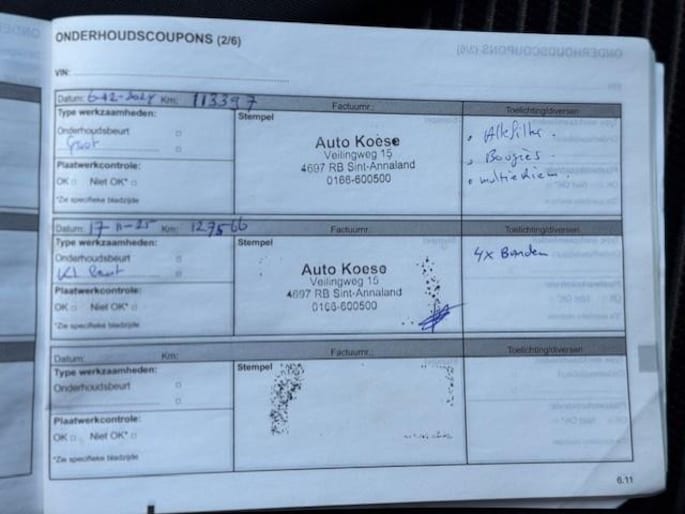 ONDERHOUDSCOUPONS (2/6)
VIN:
Datum: 6-12-2024 Km: 113397 Factuurnr.: Toelichting/diversen
Type werkzaamheden:
Onderhoudsbeurt
Groot
Plaatwerkcontrole:
OK Niet OK*
*Zie specifieke bladzijde
Stempel
Auto Koese
Veilingweg 15
4697 RB Sint-Annaland
0166-600500
• Alle filter.
• Bougies.
• multiriem.
Datum: 17-11-25 Km: 127566 Factuurnr.: Toelichting/diversen
Type werkzaamheden:
Onderhoudsbeurt
Kl Beurt
Plaatwerkcontrole:
OK Niet OK*
*Zie specifieke bladzijde
Stempel
Auto Koese
Veilingweg 15
4697 RB Sint-Annaland
0166-600500
4x Banden
Datum: Km: Factuurnr.: Toelichting/diversen
Type werkzaamheden:
Onderhoudsbeurt
Plaatwerkcontrole:
OK Niet OK*
*Zie specifieke bladzijde
Stempel
6.11